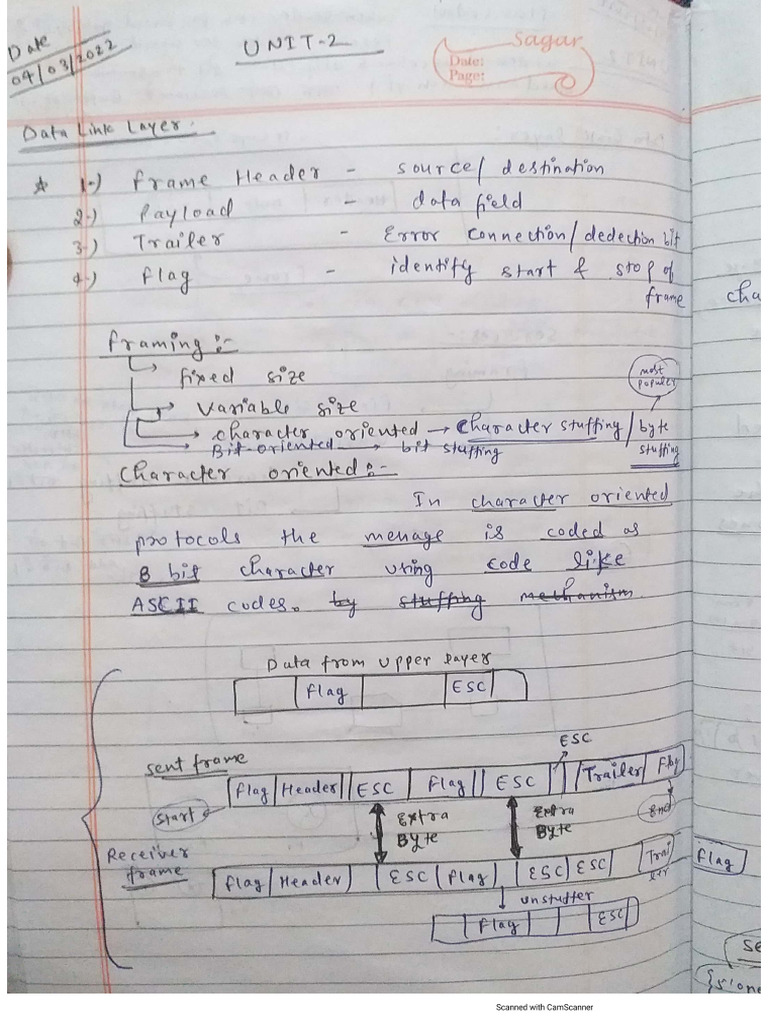 Date
04/03/2022
UNIT-2
Sagar
Date:
Page:
Data Link Layer:
* 1-) Frame Header - source/destination
2-) Payload - data field
3-) Trailer - Error connection/dedection bit
4-) flag - identify start & stop of
frame
framing :-
fixed size
Variable size
most
populer
character oriented → Character stuffing / byte
stuffing
Bit-oriented → bit stuffing
Character oriented :-
In character oriented
protocols the menage is coded as
8 bit character using code like
ASCII codes. by stuffing methanism
Data from upper layer
flag ESC
sent frame
ESC
flag Header ESC flag ESC Trailer flag
start
Extra
Byte
Extra
Byte
End
Receiver
frame
flag Header ESC flag ESC ESC Trai
ler
unstuffer
flag ESC
cha
flag
Scanned with CamScanner